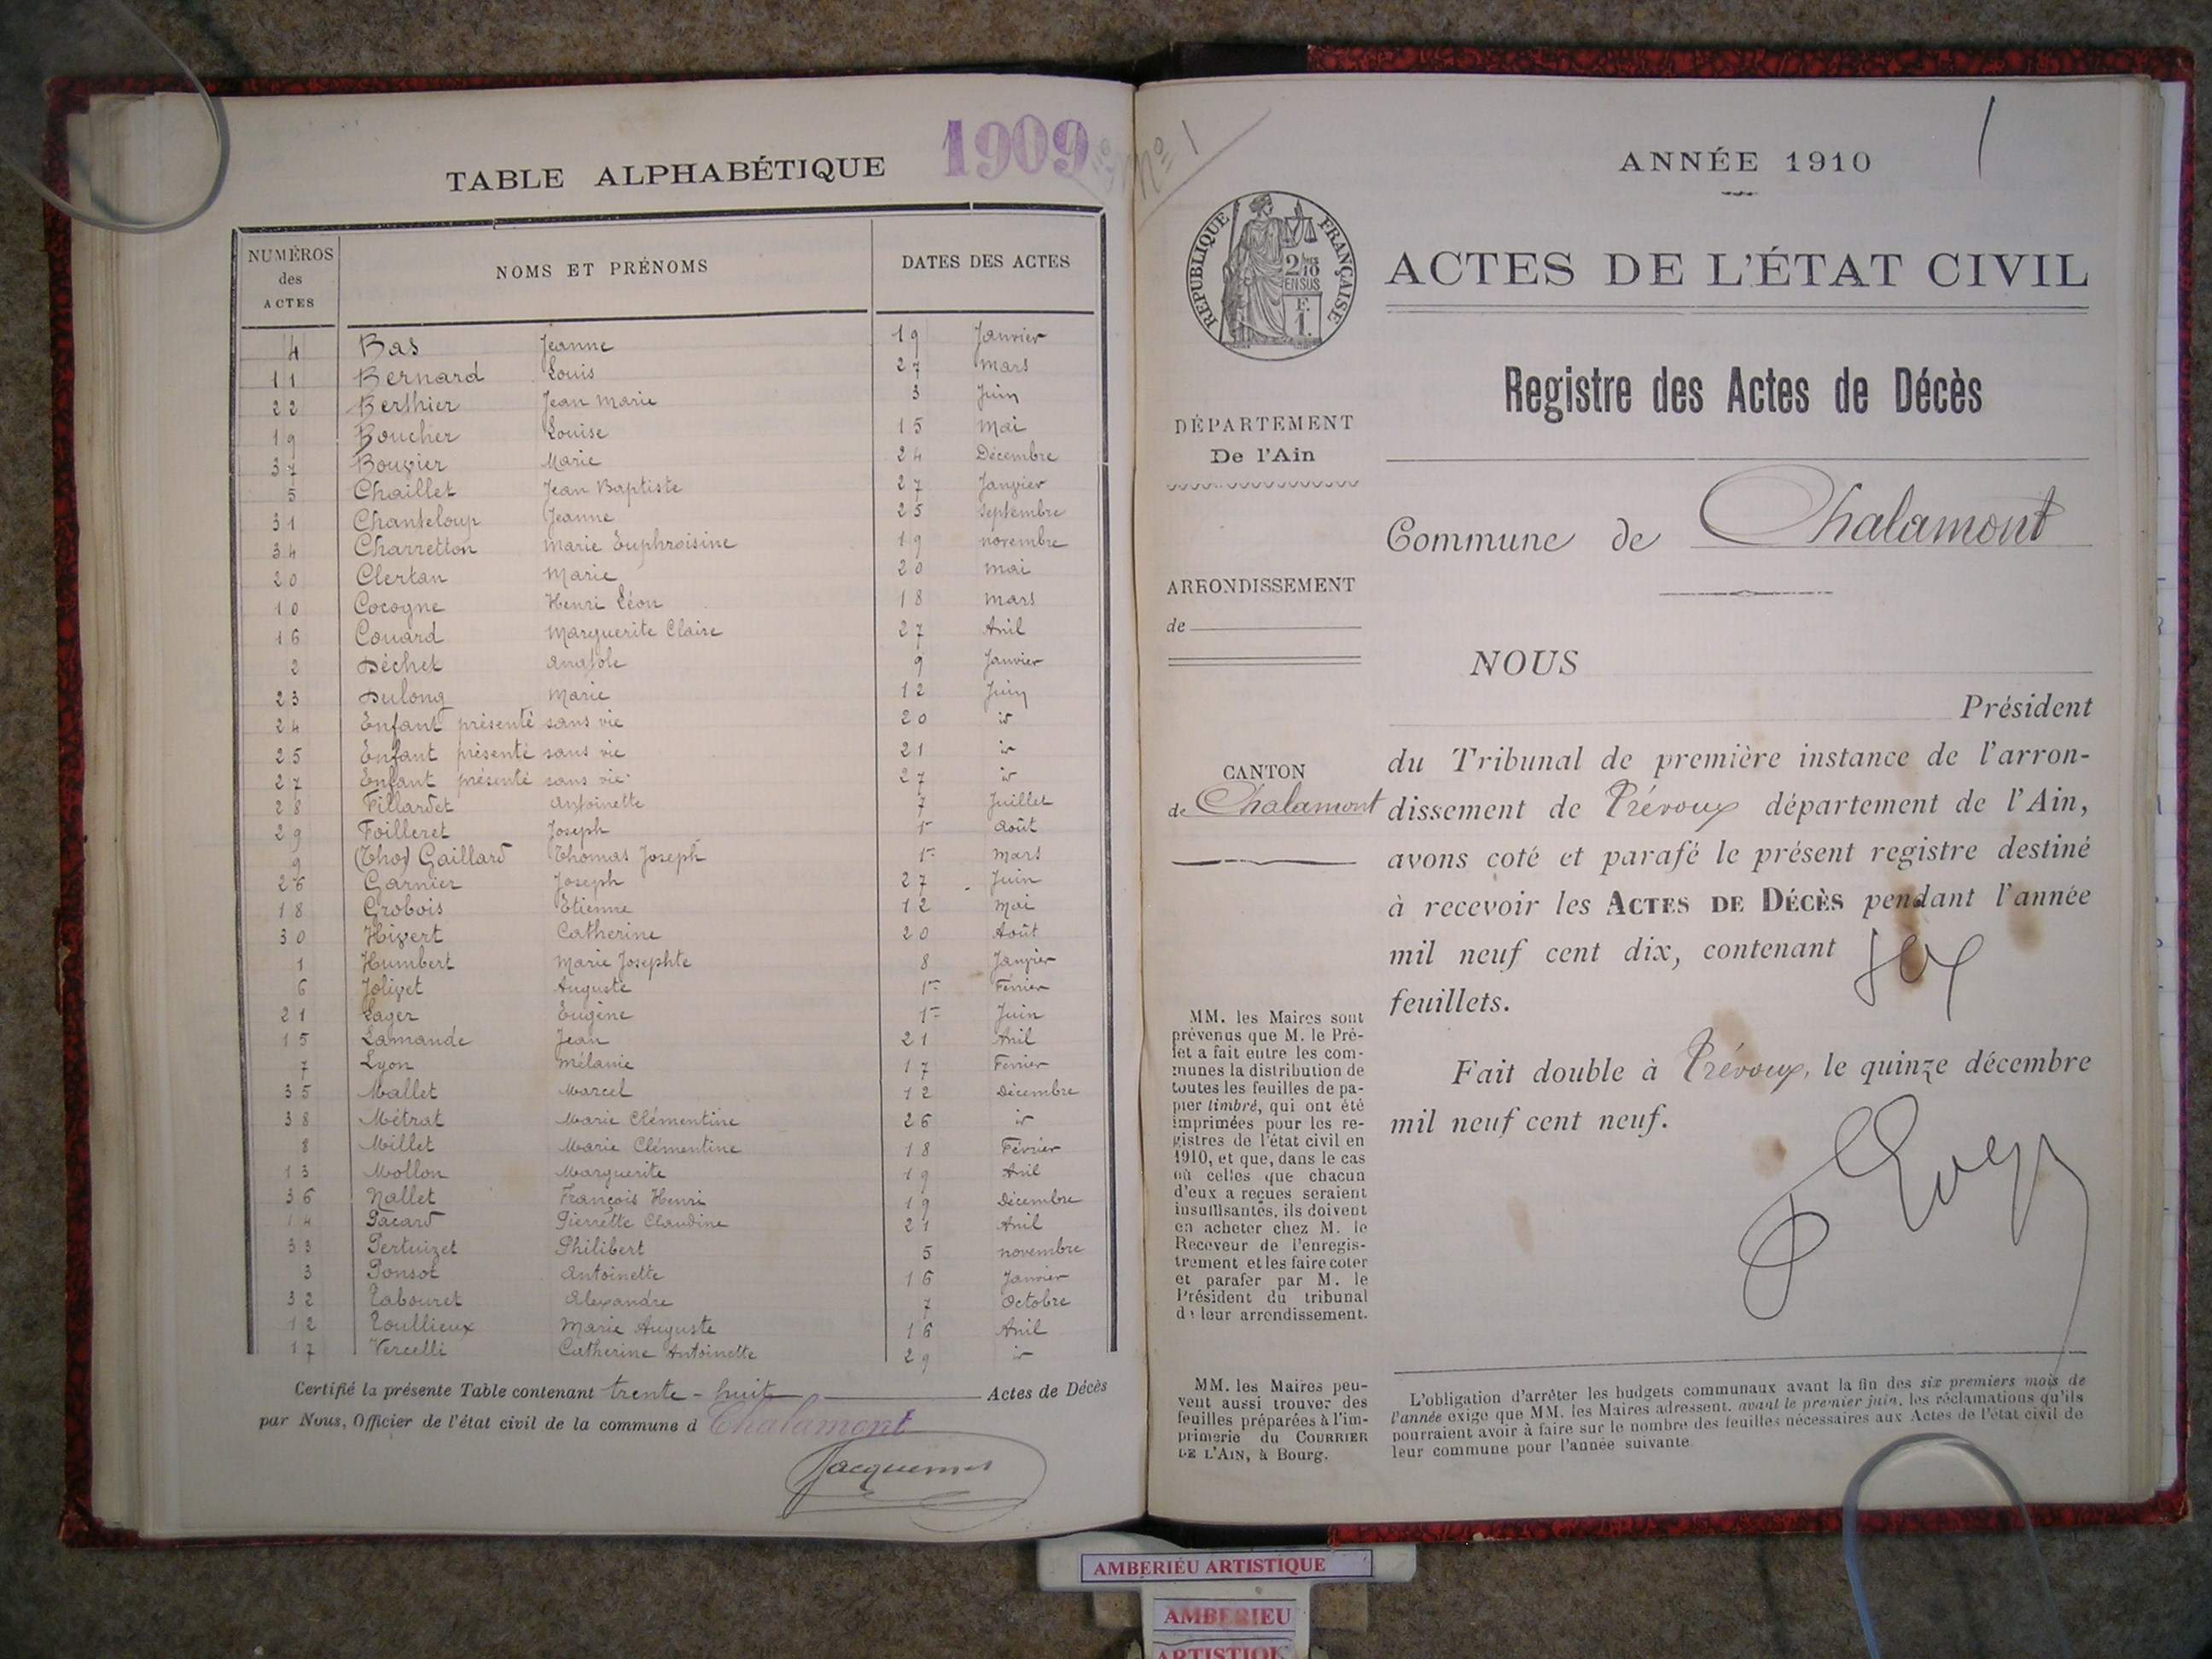 TABLE ALPHABÉTIQUE 1909
NUMÉROS des ACTES NOMS ET PRÉNOMS DATES DES ACTES
4 Bas Jeanne 19 Janvier
11 Bernard Louis 27 mars
22 Berthier Jean Marie 3 Juin
19 Boucher Louise 15 Mai
37 Bouvier Marie 24 Décembre
5 Chaillet Jean Baptiste 27 Janvier
31 Chanteloup Jeanne 25 Septembre
34 Charretton Marie Euphroisine 19 novembre
20 Clertan Marie 20 mai
10 Cocogne Henri Léon 18 mars
16 Couard Marguerite Claire 27 Avril
2 Déchet Anatole 9 Janvier
23 Dulong Marie 12 Juin
24 Enfant présenté sans vie 20 id
25 Enfant présenté sans vie 21 id
27 Enfant présenté sans vie 27 id
28 Fillardet Antoinette 7 Juillet
29 Foilleret Joseph 1er Août
9 (Tho) Gaillard Thomas Joseph 1er mars
26 Garnier Joseph 27 Juin
18 Grobois Etienne 12 Mai
30 Hivert Catherine 20 Août
1 Humbert Marie Josephte 8 Janvier
6 Jolivet Auguste 1er Février
21 Lager Eugène 1er Juin
15 Lamande Jean 21 Avril
7 Lyon Mélanie 17 Février
35 Mallet Marcel 12 Décembre
38 Métrat Marie Clémentine 26 id
8 Millet Marie Clémentine 18 Février
13 Mollon Marguerite 19 Avril
36 Nallet François Henri 19 Décembre
14 Pacard Pierrette Claudine 21 Avril
33 Pertuizet Philibert 5 novembre
3 Ponsot Antoinette 16 Janvier
32 Tabouret Alexandre 7 Octobre
12 Toullieux Marie Auguste 16 Avril
17 Vercelli Catherine Antoinette 29 id
Certifié la présente Table contenant trente-huit Actes de Décès
par Nous, Officier de l'état civil de la commune d Chalamont
Jacquemet
No 1
1
ANNÉE 1910
RÉPUBLIQUE FRANÇAISE
2/10 EN SUS
F. 1.
ACTES DE L'ÉTAT CIVIL
Registre des Actes de Décès
DÉPARTEMENT
De l'Ain
Commune de Chalamont
ARRONDISSEMENT
de
NOUS
Président
du Tribunal de première instance de l'arron-
CANTON
de Chalamont
dissement de Trévoux département de l'Ain,
avons coté et parafé le présent registre destiné
à recevoir les ACTES DE DÉCÈS pendant l'année
mil neuf cent dix, contenant
feuillets.
Fait double à Trévoux, le quinze décembre
mil neuf cent neuf.
MM. les Maires sont
prévenus que M. le Pré-
fet a fait entre les com-
munes la distribution de
toutes les feuilles de pa-
pier timbré, qui ont été
imprimées pour les re-
gistres de l'état civil en
1910, et que, dans le cas
où celles que chacun
d'eux a reçues seraient
insuffisantes, ils doivent
en acheter chez M. le
Receveur de l'enregis-
trement et les faire coter
et parafer par M. le
Président du tribunal
de leur arrondissement.
MM. les Maires peu-
vent aussi trouver des
feuilles préparées à l'im-
primerie du COURRIER
DE L'AIN, à Bourg.
L'obligation d'arrêter les budgets communaux avant la fin des six premiers mois de
l'année exige que MM. les Maires adressent, avant le premier juin, les réclamations qu'ils
pourraient avoir à faire sur le nombre des feuilles nécessaires aux Actes de l'état civil de
leur commune pour l'année suivante.
AMBERIEU ARTISTIQUE
AMBERIEU